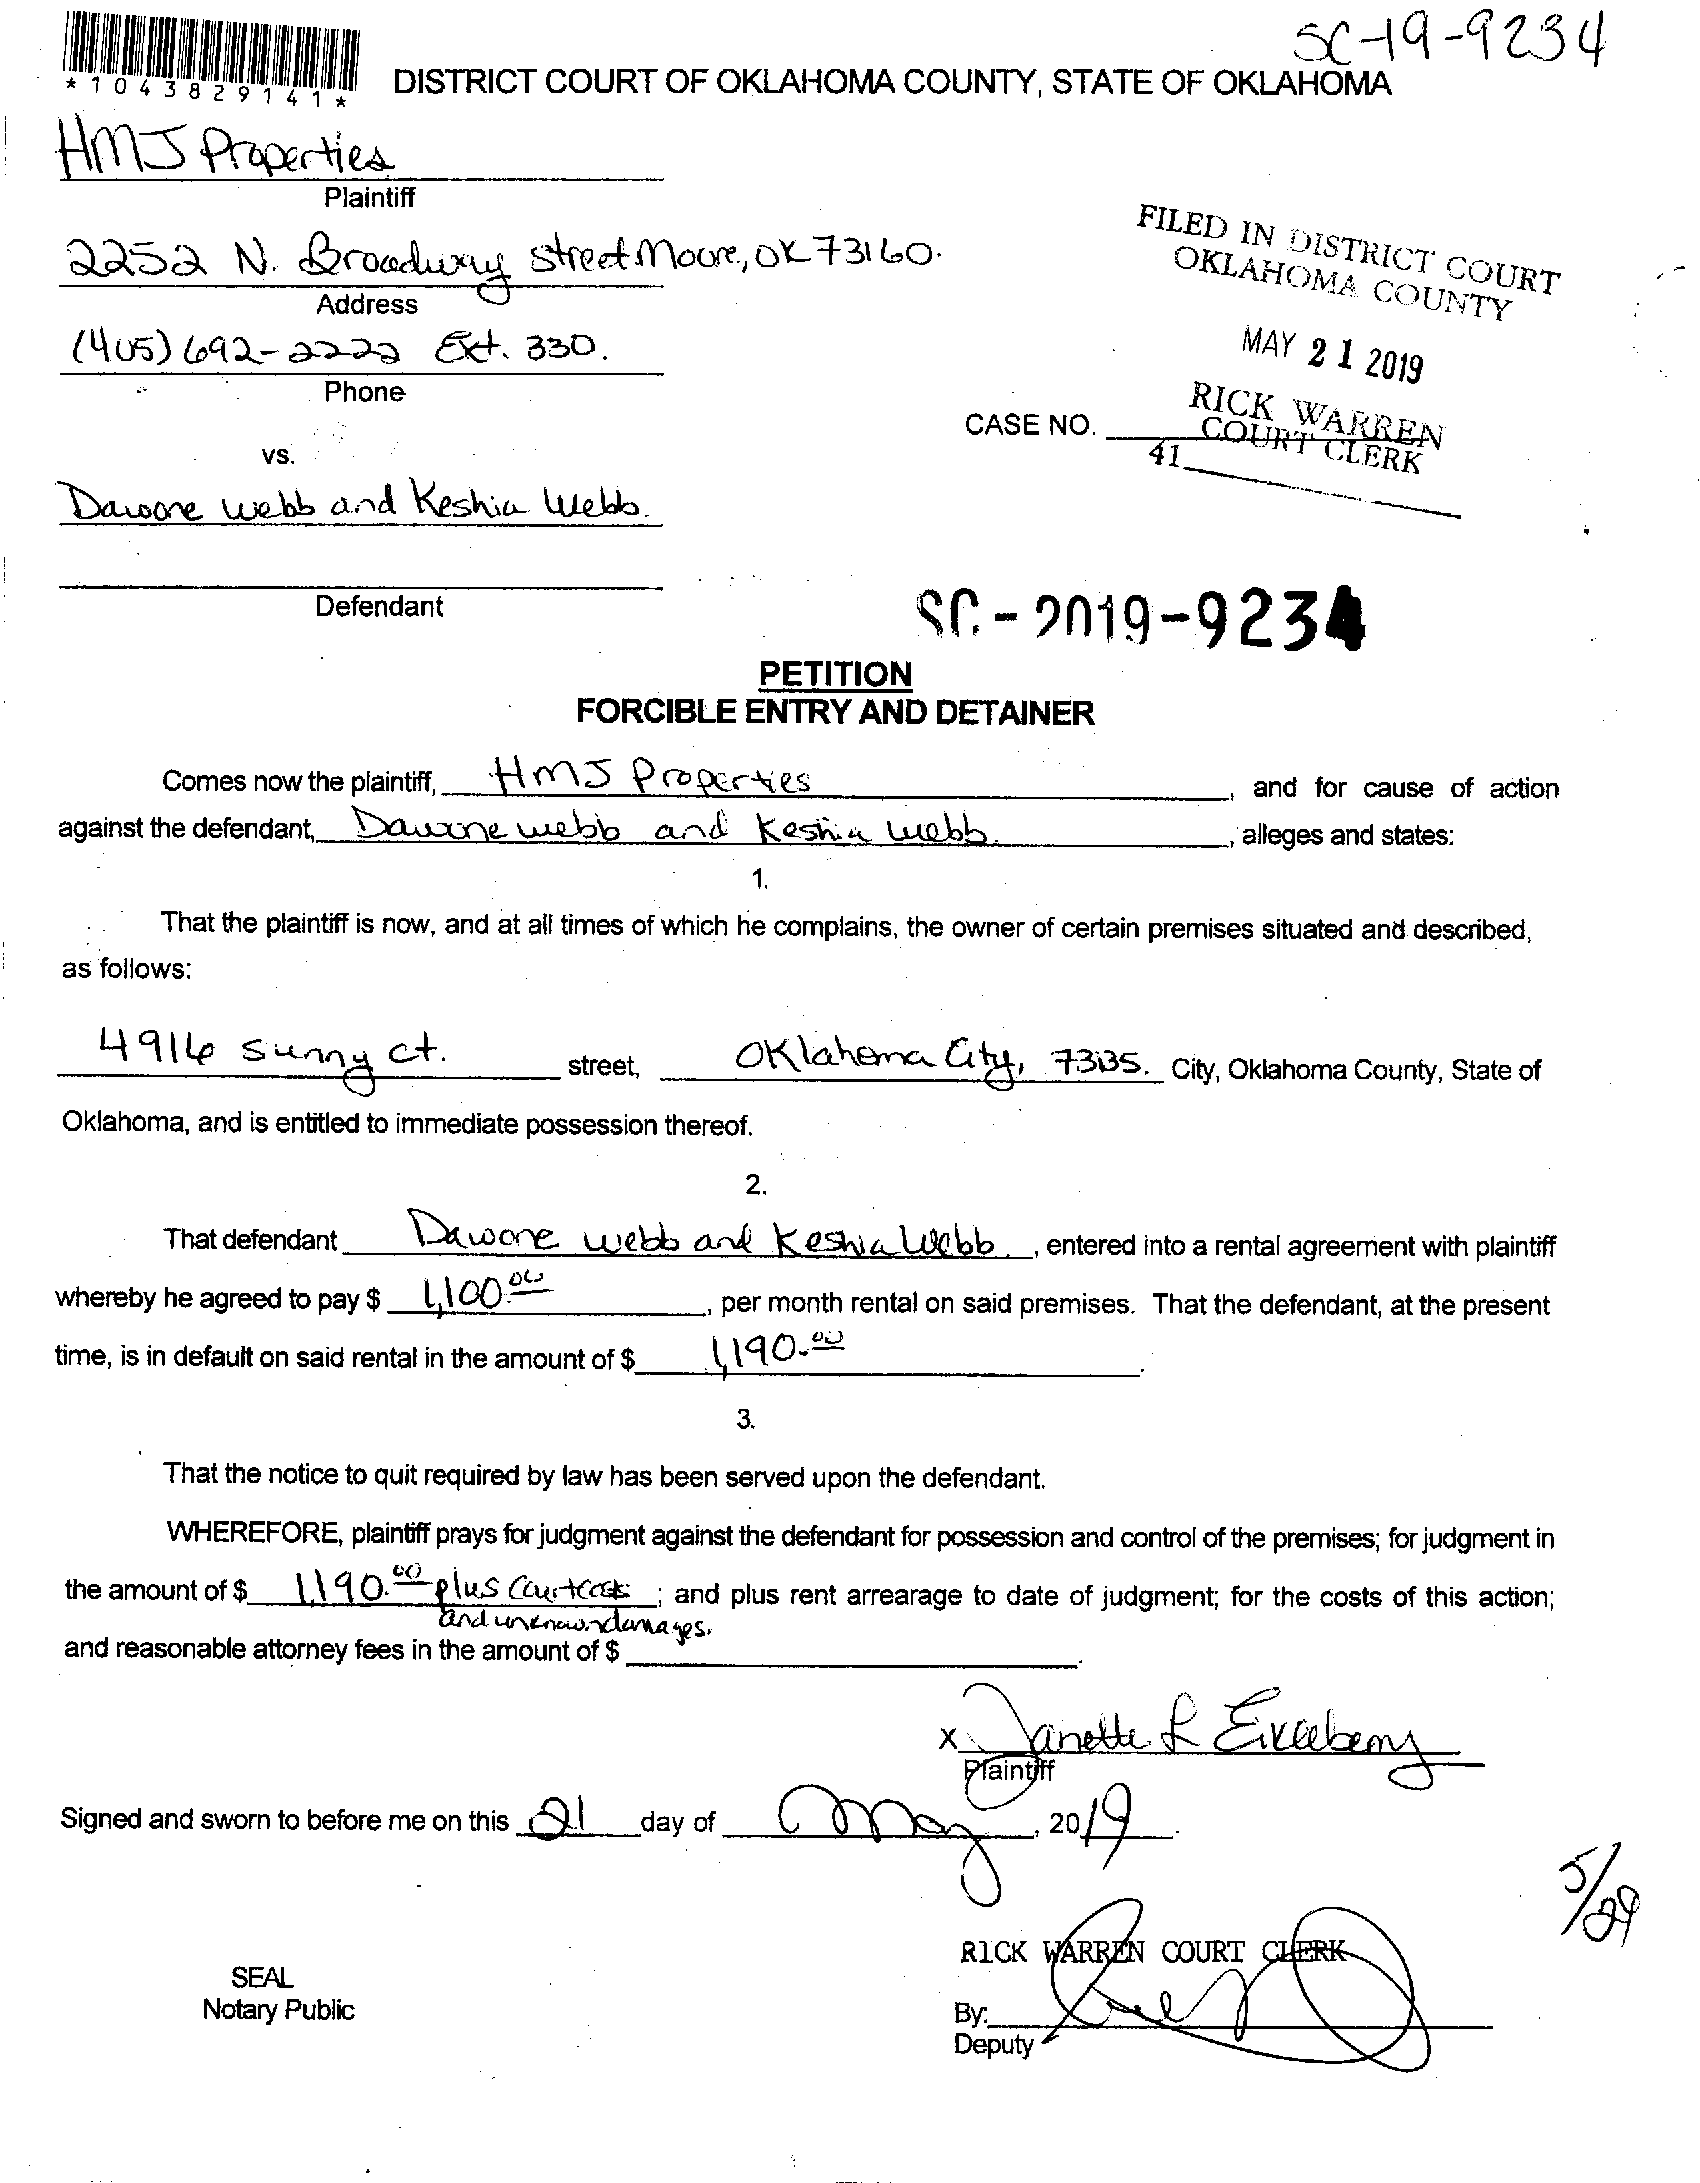 SC-19-9234
*1043829141*
DISTRICT COURT OF OKLAHOMA COUNTY, STATE OF OKLAHOMA
HMJ Properties
Plaintiff
2252 N. Broadway street Moore, OK 73160.
Address
(405) 692-2222 Ext. 330.
Phone
FILED IN DISTRICT COURT
OKLAHOMA COUNTY
MAY 21 2019
RICK WARREN
COURT CLERK
41
CASE NO.
vs.
Dawone Webb and Keshia Webb.
Defendant
SC-2019-9234
PETITION
FORCIBLE ENTRY AND DETAINER
Comes now the plaintiff, HMJ Properties, and for cause of action
against the defendant, Dawone Webb and Keshia Webb., alleges and states:
1.
That the plaintiff is now, and at all times of which he complains, the owner of certain premises situated and described,
as follows:
4916 Sunny ct. street, Oklahoma City, 73135. City, Oklahoma County, State of
Oklahoma, and is entitled to immediate possession thereof.
2.
That defendant Dawone Webb and Keshia Webb., entered into a rental agreement with plaintiff
whereby he agreed to pay $ 1,100.00, per month rental on said premises. That the defendant, at the present
time, is in default on said rental in the amount of $ 1,190.00.
3.
That the notice to quit required by law has been served upon the defendant.
WHEREFORE, plaintiff prays for judgment against the defendant for possession and control of the premises; for judgment in
the amount of $ 1,190.00 plus Court costs; and plus rent arrearage to date of judgment; for the costs of this action;
and unknown damages.
and reasonable attorney fees in the amount of $ .
x Janette L
Plaintiff
Signed and sworn to before me on this 21 day of May, 2019.
5/29
RICK WARREN COURT CLERK
SEAL
Notary Public
By:
Deputy